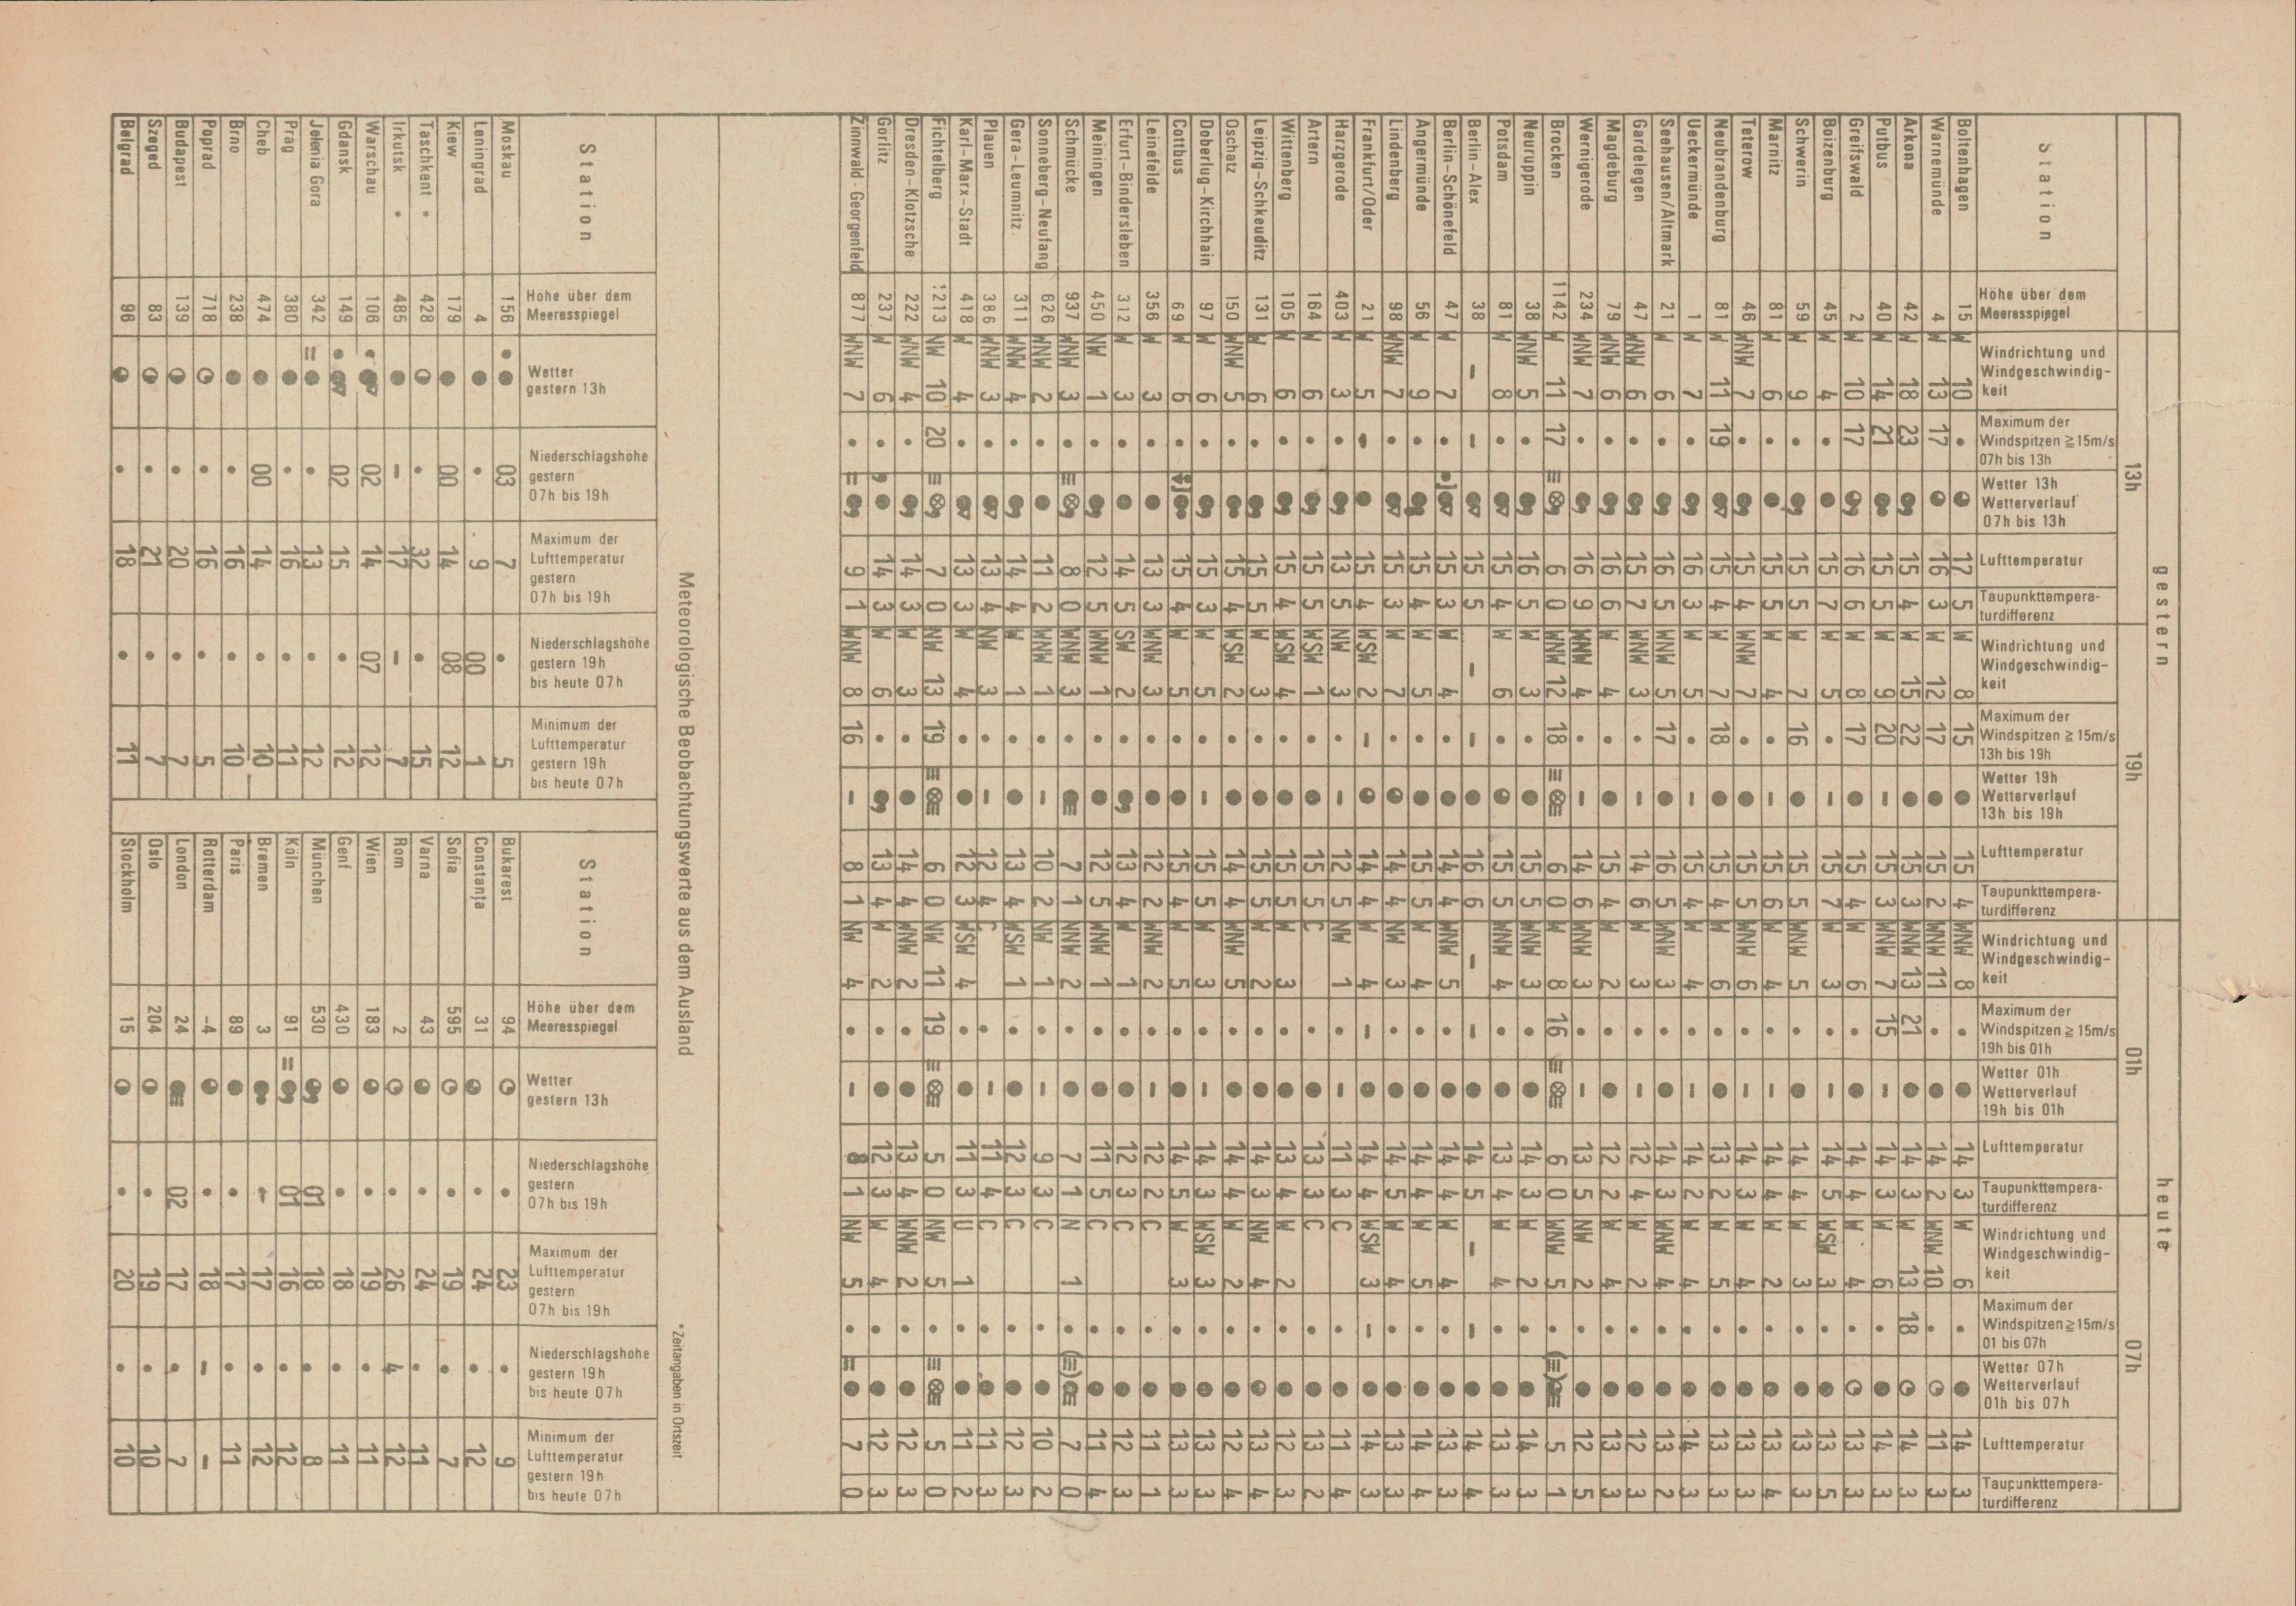 gestern heute
13h 19h 01h 07h
Station
Höhe über dem
Meeresspiegel
Windrichtung und
Windgeschwindig-
keit
Maximum der
Windspitzen ≧ 15m/s
07h bis 13h
Wetter 13h
Wetterverlauf
07h bis 13h
Lufttemperatur
Taupunkttempera-
turdifferenz
Windrichtung und
Windgeschwindig-
keit
Maximum der
Windspitzen ≧ 15m/s
13h bis 19h
Wetter 19h
Wetterverlauf
13h bis 19h
Lufttemperatur
Taupunkttempera-
turdifferenz
Windrichtung und
Windgeschwindig-
keit
Maximum der
Windspitzen ≧ 15m/s
19h bis 01h
Wetter 01h
Wetterverlauf
19h bis 01h
Lufttemperatur
Taupunkttempera-
turdifferenz
Windrichtung und
Windgeschwindig-
keit
Maximum der
Windspitzen ≧ 15m/s
01 bis 07h
Wetter 07h
Wetterverlauf
01h bis 07h
Lufttemperatur
Taupunkttempera-
turdifferenz
Boltenhagen 15 W 10 • 17 5 W 8 15 15 4 WNW 8 • 14 3 W 6 • 14 3
Warnemünde 4 W 13 17 16 3 W 12 17 15 2 WNW 11 • 14 2 WNW 10 • 11 3
Arkona 42 W 18 23 15 4 W 15 22 15 3 WNW 13 21 14 3 W 13 18 14 3
Putbus 40 W 14 21 15 5 W 9 20 15 3 WNW 7 15 14 3 W 6 • 14 3
Greifswald 2 W 10 17 16 6 W 8 17 15 4 W 6 • 14 4 W 4 • 13 3
Boizenburg 45 W 4 • 15 7 W 5 • 15 7 W 3 • 14 5 WSW 3 • 13 5
Schwerin 59 W 9 • 15 5 W 7 16 15 5 WNW 5 • 14 4 W 3 • 13 3
Marnitz 81 W 6 • 15 5 W 4 • 15 6 W 4 • 14 4 W 2 • 13 4
Teterow 46 WNW 7 • 15 4 WNW 7 • 15 5 WNW 6 • 14 3 W 4 • 13 3
Neubrandenburg 81 W 11 19 15 4 W 7 18 15 4 W 6 • 13 2 W 5 • 13 3
Ueckermünde 1 W 7 • 16 3 W 5 • 15 4 W 4 • 14 2 W 4 • 14 3
Seehausen/Altmark 21 W 6 • 16 5 WNW 5 17 16 5 WNW 3 • 14 3 WNW 4 • 13 2
Gardelegen 47 WNW 6 • 15 7 WNW 3 • 14 6 W 3 • 12 4 W 2 • 12 3
Magdeburg 79 WNW 6 • 16 6 W 4 • 15 4 W 2 • 12 2 W 4 • 13 3
Wernigerode 234 WNW 7 • 16 9 WNW 4 • 14 6 WNW 3 • 13 5 NW 2 • 12 5
Brocken 1142 W 11 17 6 0 WNW 12 18 6 0 W 8 16 6 0 WNW 5 • 5 1
Neuruppin 38 WNW 5 • 16 5 W 3 • 15 5 WNW 3 • 14 3 W 2 • 14 3
Potsdam 81 W 8 • 15 4 W 6 • 15 5 WNW 4 • 13 4 W 4 • 13 3
Berlin-Alex 38 – – 15 5 – – 16 6 – – 14 5 – – 14 4
Berlin-Schönefeld 47 W 7 • 15 3 W 4 • 14 4 WNW 5 • 14 4 W 4 • 13 3
Angermünde 56 W 9 • 15 4 W 5 • 15 5 W 4 • 14 4 W 5 • 14 4
Lindenberg 98 WNW 7 • 15 3 W 7 • 14 4 NW 3 • 14 5 W 4 • 13 3
Frankfurt/Oder 21 W 5 – 15 4 WSW 2 – 14 4 W 4 – 14 4 WSW 3 – 14 3
Harzgerode 403 W 3 • 13 5 NW 3 • 12 5 NW 1 • 11 3 C • 11 4
Artern 164 W 6 • 15 5 WSW 1 • 15 5 C • 13 3 C • 13 2
Wittenberg 105 W 6 • 15 4 WSW 4 • 15 5 W 3 • 13 4 W 2 • 12 3
Leipzig-Schkeuditz 131 W 6 • 15 5 W 3 • 15 5 W 2 • 14 3 NW 4 • 13 4
Oschatz 150 WNW 5 • 15 4 WSW 2 • 14 4 WNW 5 • 14 4 W 2 • 12 4
Doberlug-Kirchhain 97 W 6 • 15 3 W 5 • 15 5 W 3 • 14 3 WSW 3 • 13 3
Cottbus 69 W 6 • 15 4 W 5 • 15 4 W 5 • 14 5 W 3 • 13 3
Leinefelde 356 W 3 • 13 3 WNW 3 • 12 2 WNW 2 • 12 2 C • 11 1
Erfurt-Bindersleben 312 W 3 • 14 5 SW 2 • 13 4 W 1 • 12 3 C • 12 3
Meiningen 450 NW 1 • 12 5 WNW 1 • 12 5 WNW 1 • 11 5 C • 11 4
Schmücke 937 WNW 3 • 8 0 WNW 3 • 7 1 NNW 2 • 7 1 N 1 • 7 0
Sonneberg-Neufang 626 WNW 2 • 11 2 WNW 1 • 10 2 NW 1 • 9 3 C • 10 2
Gera-Leumnitz 311 WNW 4 • 14 4 W 1 • 13 4 WSW 1 • 12 3 C • 12 3
Plauen 386 WNW 3 • 13 4 NW 3 • 12 4 C • 11 4 C • 11 3
Karl-Marx-Stadt 418 W 4 • 13 3 W 4 • 12 3 WSW 4 • 11 3 U 1 • 11 2
Fichtelberg 1213 NW 10 20 7 0 NW 13 19 6 0 NW 11 19 5 0 NW 5 • 5 0
Dresden-Klotzsche 222 WNW 4 • 14 3 W 3 • 14 4 WNW 2 • 13 4 WNW 2 • 12 3
Görlitz 237 W 6 • 14 3 W 6 • 13 4 W 2 • 12 3 W 4 • 12 3
Zinnwald-Georgenfeld 877 WNW 7 • 9 1 WNW 8 16 8 1 NW 4 • 8 1 NW 5 • 7 0
Meteorologische Beobachtungswerte aus dem Ausland
*Zeitangaben in Ortszeit
Station
Höhe über dem
Meeresspiegel
Wetter
gestern 13h
Niederschlagshöhe
gestern
07h bis 19h
Maximum der
Lufttemperatur
gestern
07h bis 19h
Niederschlagshöhe
gestern 19h
bis heute 07h
Minimum der
Lufttemperatur
gestern 19h
bis heute 07h
Moskau 156 03 7 • 5
Leningrad 4 • 9 00 1
Kiew 179 00 14 08 12
Taschkent * 428 • 32 • 15
Irkutsk * 485 – 17 – 7
Warschau 106 02 14 07 12
Gdansk 149 02 15 • 12
Jelenia Gora 342 • 13 • 12
Prag 380 • 16 • 11
Cheb 474 00 14 • 10
Brno 238 • 16 • 10
Poprad 718 • 16 • 5
Budapest 139 • 20 • 7
Szeged 83 • 21 • 7
Belgrad 96 • 18 • 11
Station
Höhe über dem
Meeresspiegel
Wetter
gestern 13h
Niederschlagshöhe
gestern
07h bis 19h
Maximum der
Lufttemperatur
gestern
07h bis 19h
Niederschlagshöhe
gestern 19h
bis heute 07h
Minimum der
Lufttemperatur
gestern 19h
bis heute 07h
Bukarest 94 • 23 • 9
Constanța 31 • 24 • 12
Sofia 595 • 19 • 7
Varna 43 • 24 • 11
Rom 2 • 26 4 12
Wien 183 • 19 • 11
Genf 430 • 18 • 11
München 530 01 18 • 8
Köln 91 01 16 • 12
Bremen 3 17 • 12
Paris 89 • 17 • 11
Rotterdam -4 • 18 – –
London 24 02 17 • 7
Oslo 204 • 19 • 10
Stockholm 15 • 20 • 10